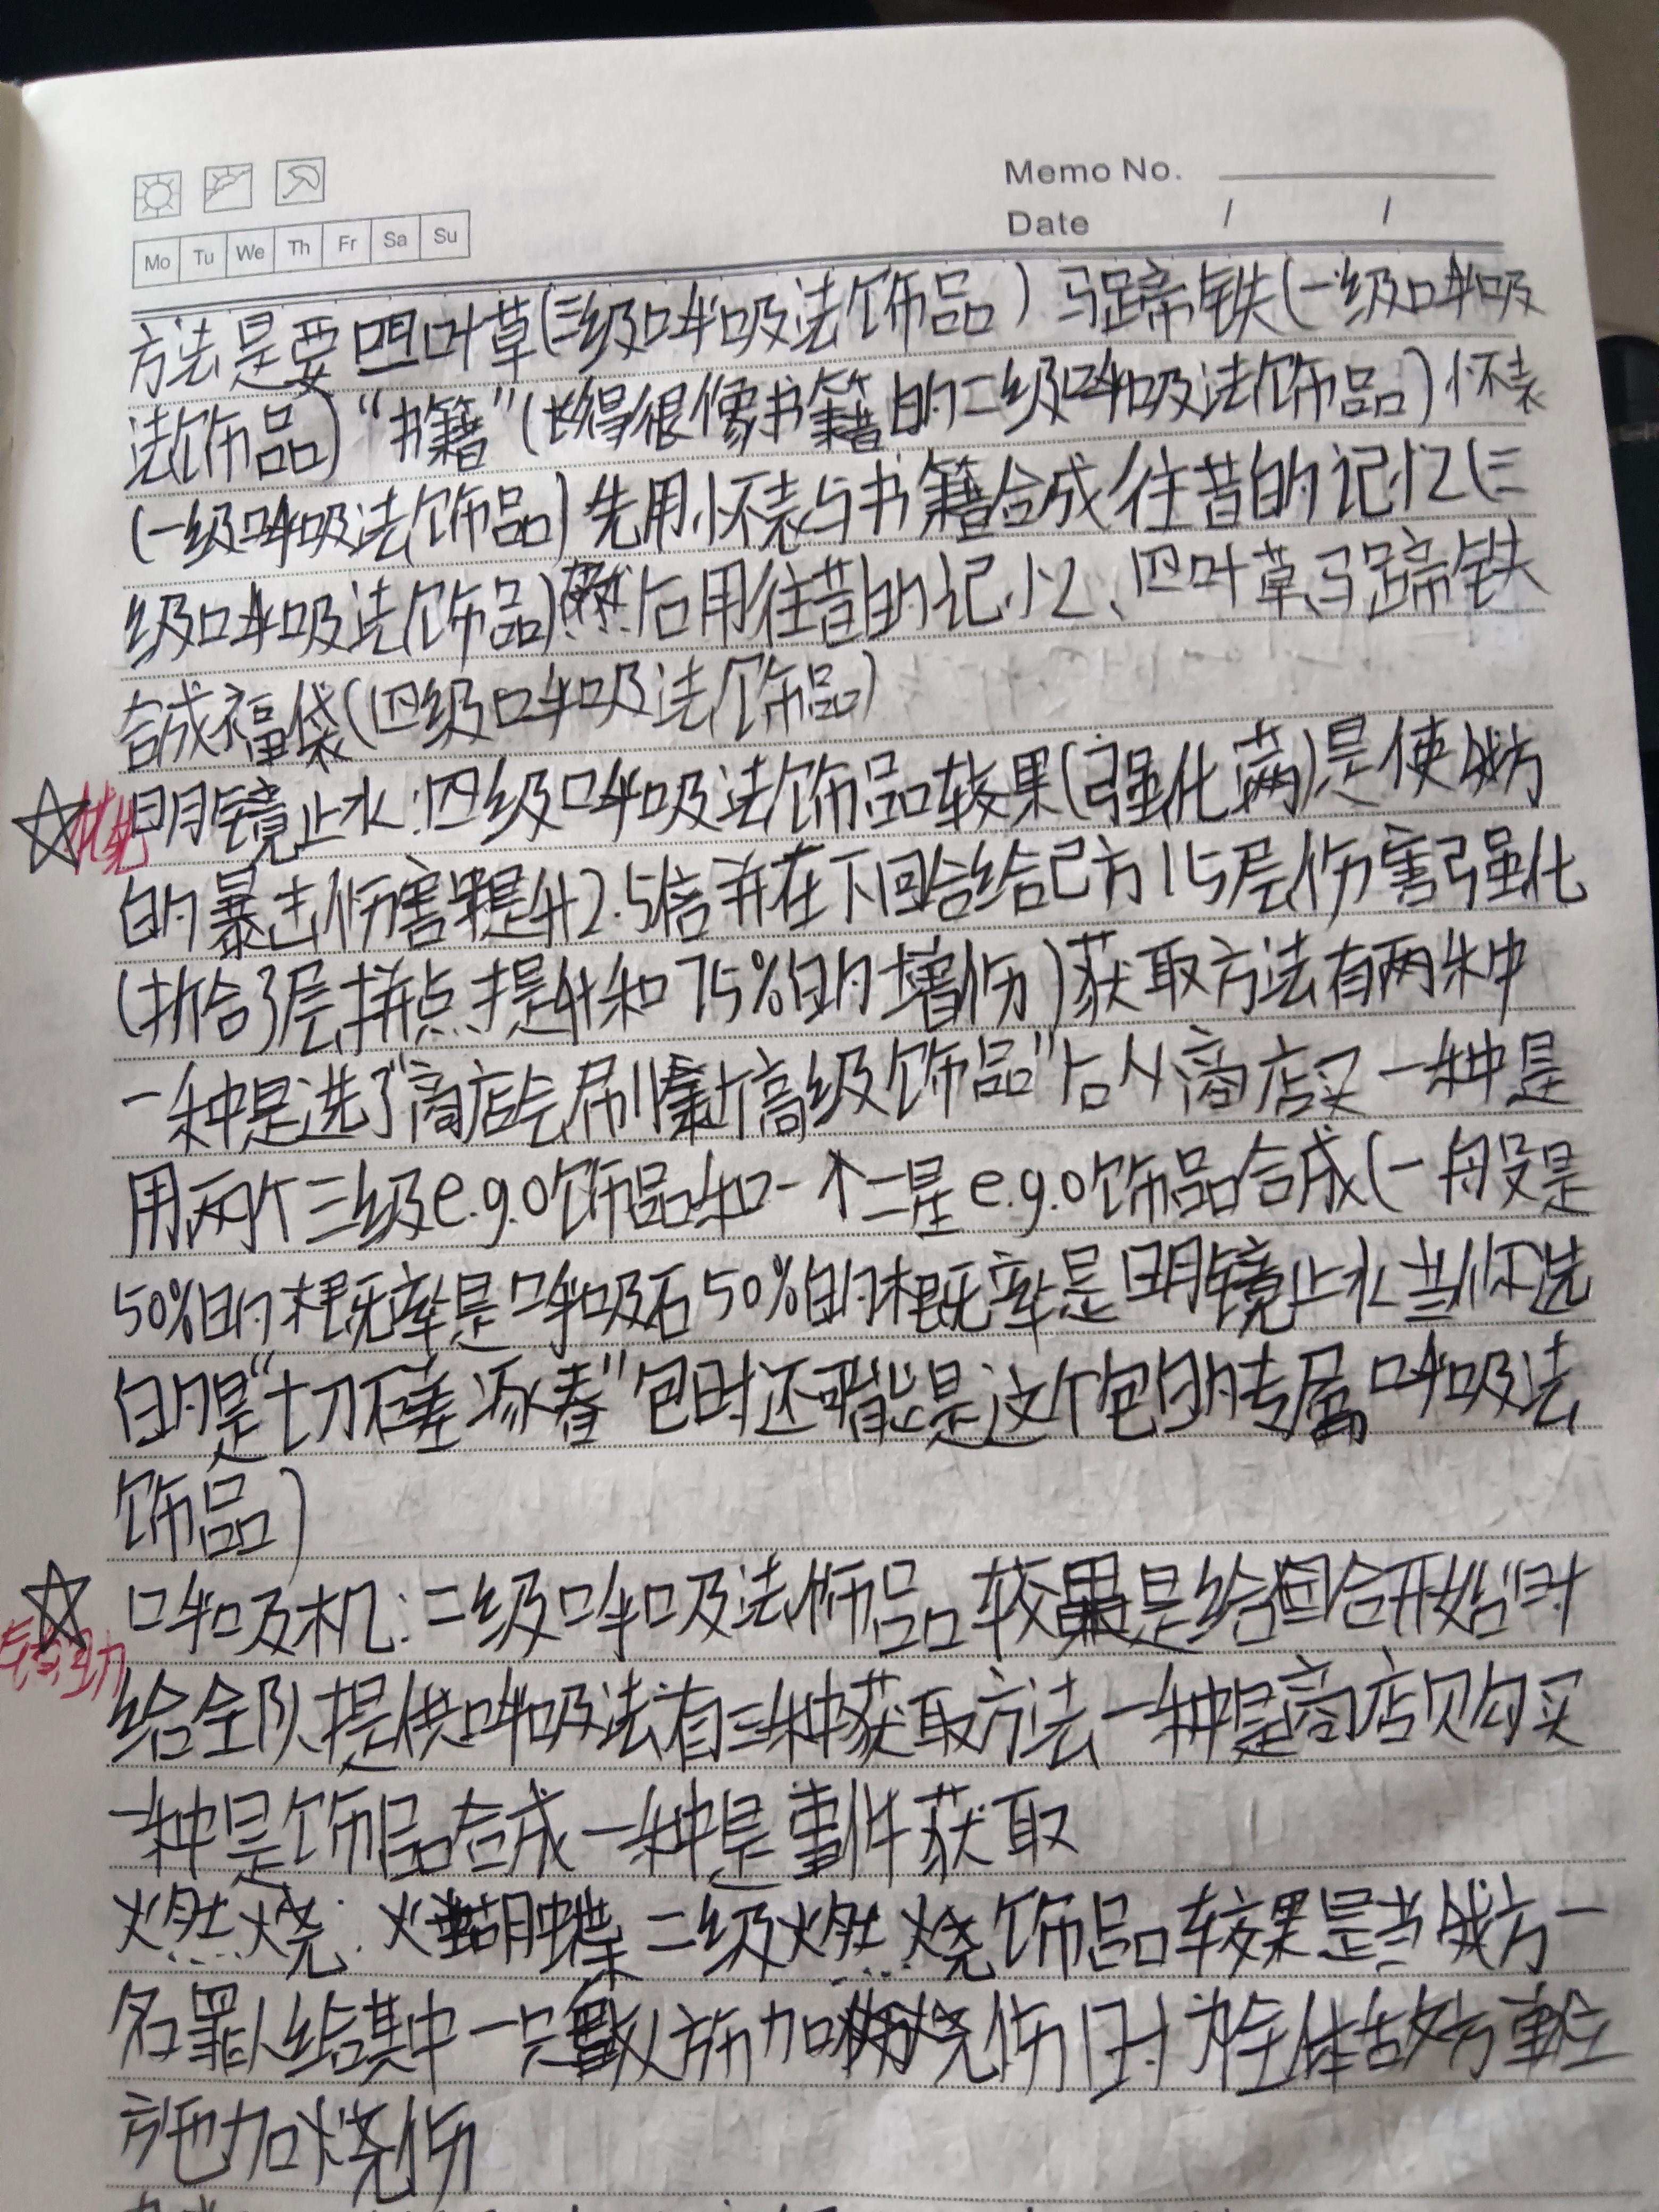 Memo No.
Date / /
Mo Tu We Th Fr Sa Su
方法是要四叶草(三级呼吸法饰品)马蹄铁(一级呼吸
法饰品)“书籍”(长得很像书籍的二级呼吸法饰品)怀表
(一级呼吸法饰品)先用怀表与书籍合成往昔的记忆(三
级呼吸法饰品)然后用往昔的记忆、四叶草、马蹄铁
合成福袋(四级呼吸法饰品)
☆ 明镜止水:四级呼吸法饰品较果(强化满)是使我方
的暴击伤害提升2.5倍并在下回合给己方15层伤害强化
(折合3层拼点提升和75%的增伤)获取方法有两种
一种是选了“商店会刷新高级饰品”后从商店买一种是
用两个三级e.g.o饰品和一个二星e.g.o饰品合成(一般是
50%的概率是呼吸石50%的概率是明镜止水当你选
的是“七刀石差 逐春”包时还可能是这个包的专属呼吸法
饰品)
☆ 呼吸机:二级呼吸法饰品较果是给回合开始时
给全队提供呼吸法有三种获取方法一种是商店购买
一种是饰品合成一种是事件获取
燃烧:火蝴蝶二级燃烧饰品较果是当我方一
名罪人给其中一只敌人施加烧伤时为全体敌方单位
施加烧伤